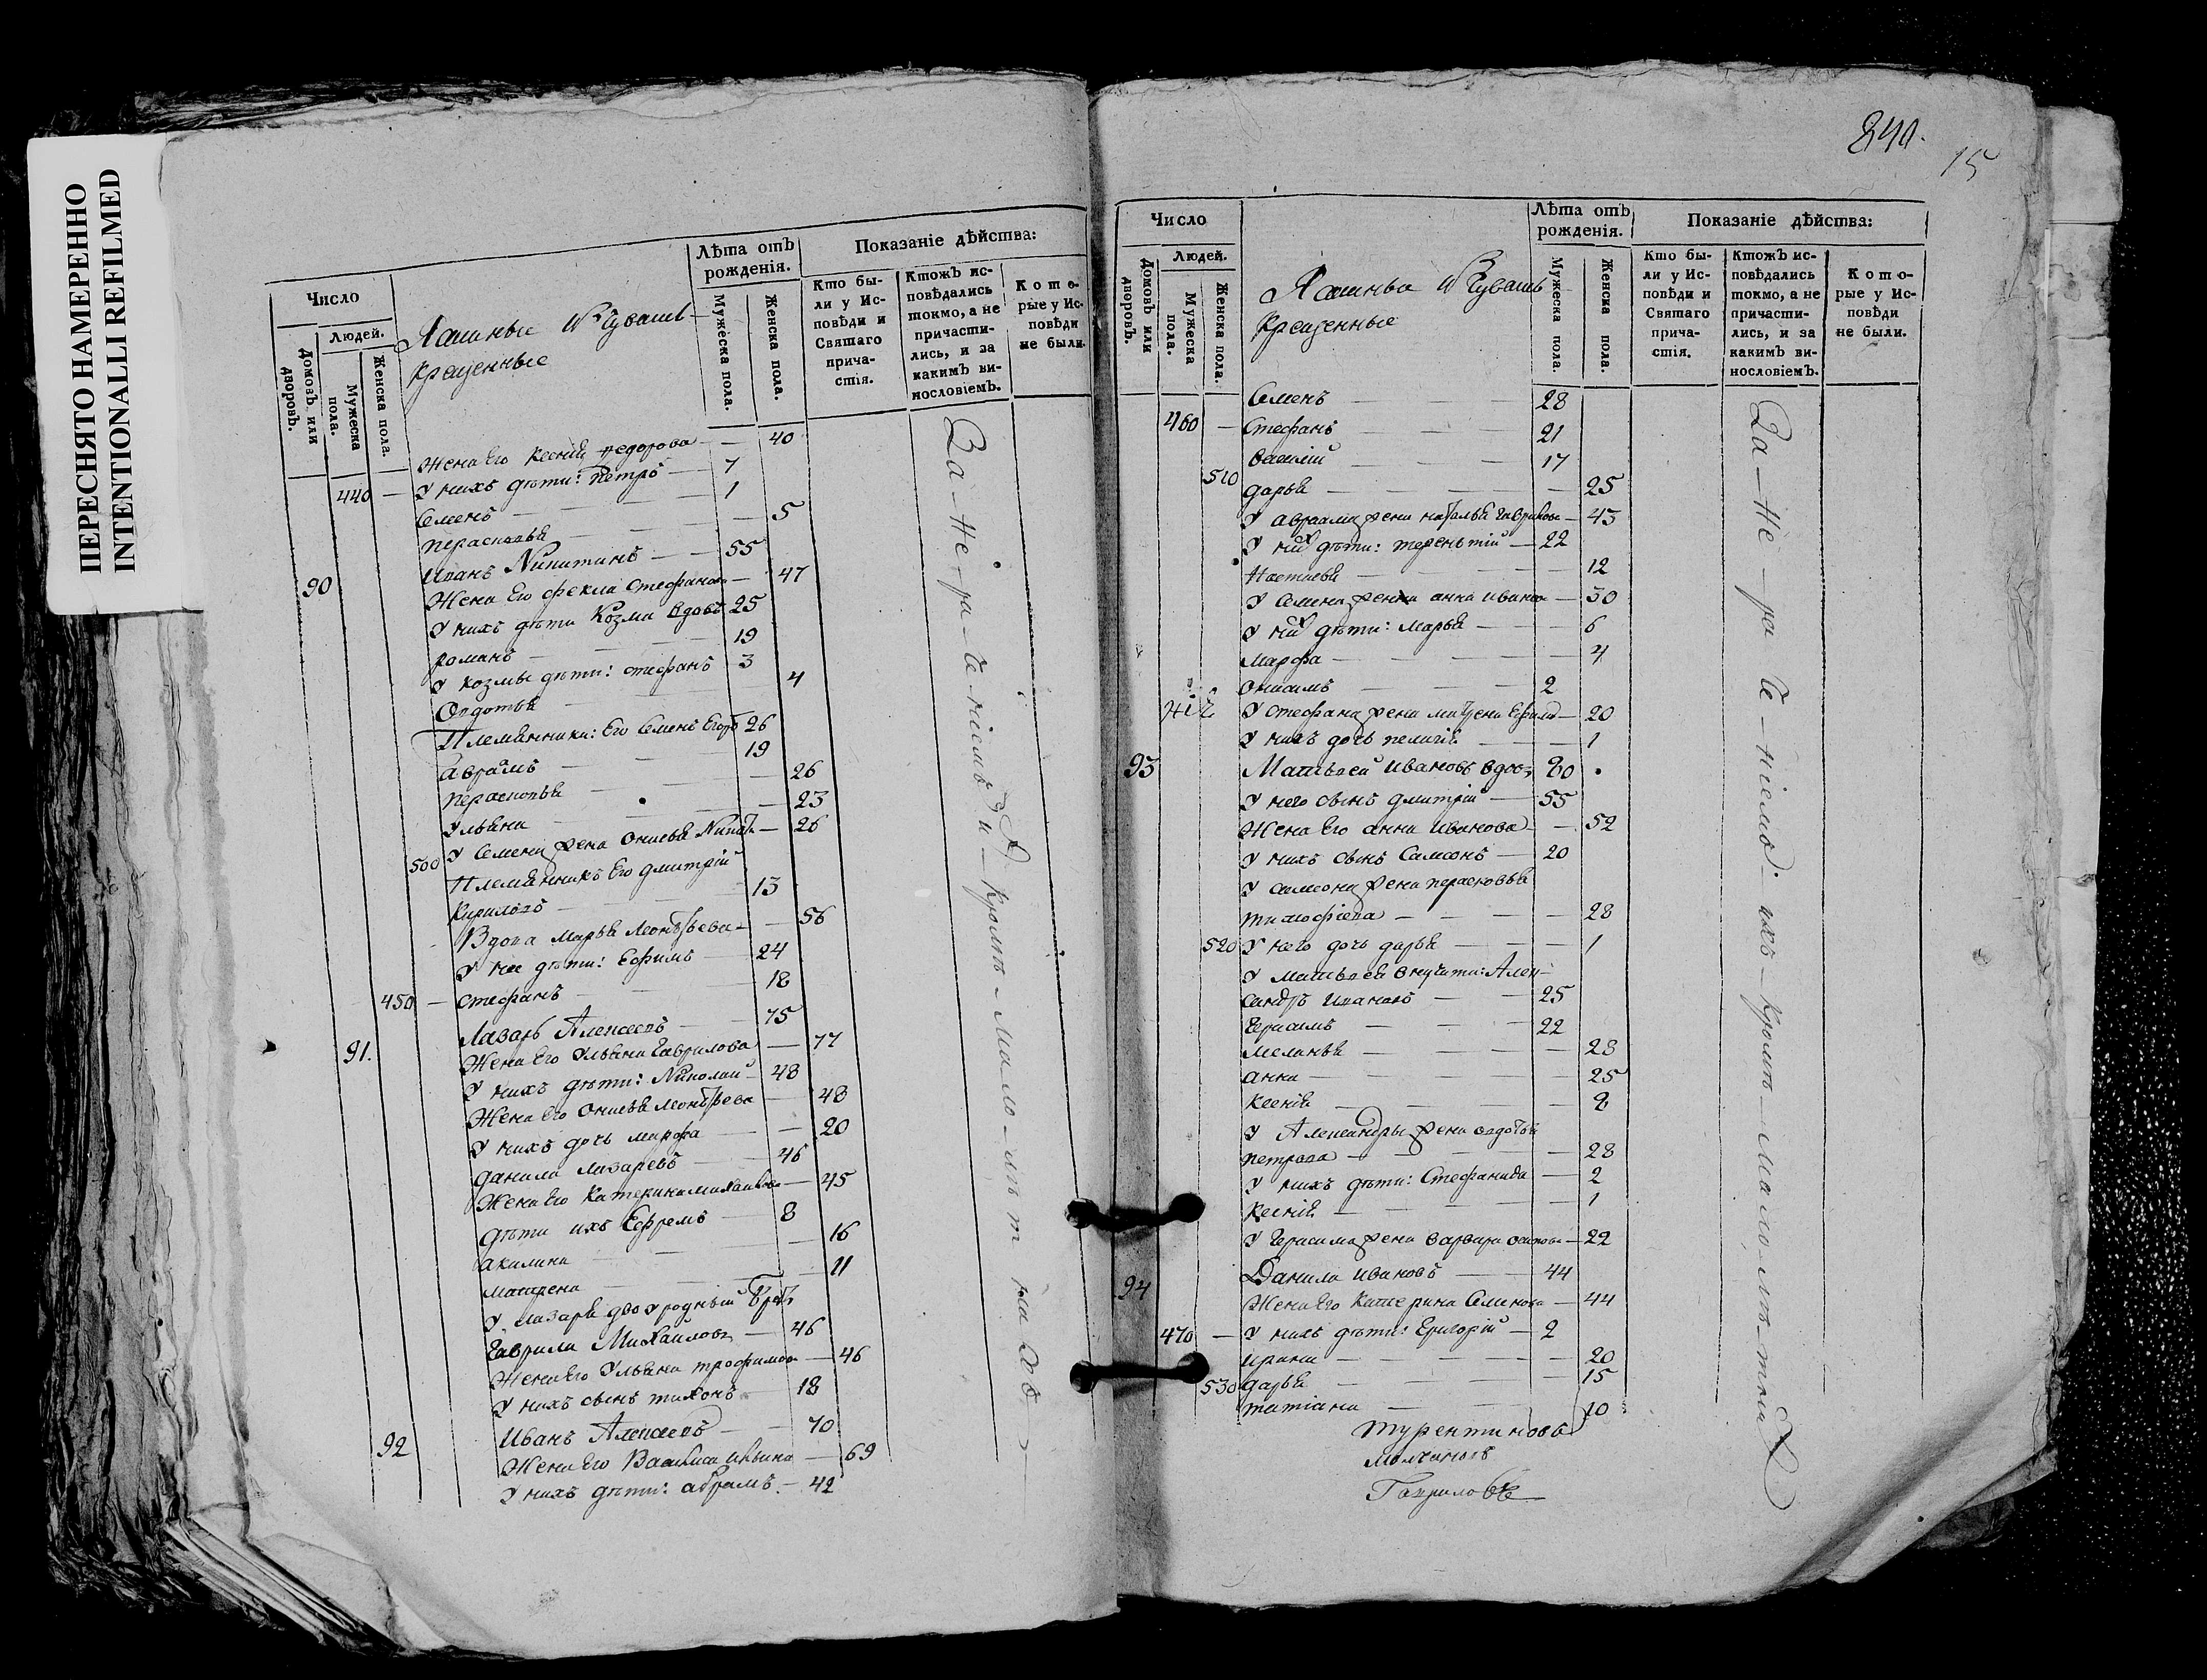 ПЕРЕСНЯТО НАМЕРЕННО
INTENTIONALLI REFILMED
Число
Людей.
Домовъ или дворовъ.
Мужеска пола.
Женска пола.
крещенные
Лѣта отъ рожденія.
Мужеска пола.
Женска пола.
Показаніе дѣйства:
Кто бы-
ли у Ис-
повѣди и
Святаго
прича-
стія.
Ктожъ ис-
повѣдались
токмо, а не
причасти-
лись, и за
какимъ ви-
нословіемъ.
Кото-
рые у Ис-
повѣди
не были.
Жена Его Ксенія Федорова — 40
440 — У нихъ дѣти: Петръ — 7
Семенъ — 1
Перасковья — 5
90 Иванъ Никитинъ — 55
Жена Его Фекла Стефанова — 47
У нихъ дѣти Козма вдовъ 25
Романъ — 19
У Козмы дѣти: Стефанъ 3
Овдотья — 4
Племянники: Его Семенъ Егоровъ 26
Аврамъ — 19
Перасковья — 26
Ульяна — 23
500 У Семена жена Онисья — 26
Племянникъ Его Дмитрій
Кириловъ — 13
Вдова Марья Леонтьева — 56
У нее дѣти: Ефимъ — 24
450 — Стефанъ — 18
91. Лазарь Алексеевъ — 75
Жена Его Ульяна Гаврилова — 77
У нихъ дѣти: Николай — 48
Жена Его Онисья Леонтьева — 48
У нихъ дочь Марфа — 20
Данила Лазаревъ — 46
Жена Его Катерина Михайлова — 45
Дѣти ихъ Ефремъ — 8
Акилина — 16
Матрена — 11
У Лазаря двоуродный братъ
Гаврила Михайловъ — 46
Жена Его Ульяна Трофимова — 46
У нихъ сынъ Тихонъ — 18
92 Иванъ Алексеевъ — 70
Жена Его Василиса Ильина — 69
У нихъ дѣти: Абрамъ — 42
За-не-ра-че-ніемъ и-хъ кромѣ-мало-лѣт-ныхъ
840.
15
Число
Людей.
Домовъ или дворовъ.
Мужеска пола.
Женска пола.
крещенные
Лѣта отъ рожденія.
Мужеска пола.
Женска пола.
Показаніе дѣйства:
Кто бы-
ли у Ис-
повѣди и
Святаго
прича-
стія.
Ктожъ ис-
повѣдались
токмо, а не
причасти-
лись, и за
какимъ ви-
нословіемъ.
Кото-
рые у Ис-
повѣди
не были.
Семенъ — 28
460 — Стефанъ — 21
Василій — 17
510 Дарья — 25
У Авраама жена Наталья Гаврилова — 43
У них дѣти: Терентій — 22
Настасья — 12
У Семена жена Анна Иванова — 30
У них дѣти: Марья — 6
Марфа — 4
Онисимъ — 2
У Стефана жена Матрена — 20
У нихъ дочь Пелагія — 1
93 Матьвей Ивановъ вдовъ 80
У него сынъ Дмитрій — 55
Жена Его Анна Иванова — 52
У нихъ сынъ Самсонъ — 20
У Самсона жена Перасковья
Тимофіева — 28
520 У него дочь Дарья — 1
У Матьвея внучати: Алек-
сандръ Ивановъ — 25
Герасимъ — 22
Меланья — 28
Анна — 25
Ксенія — 8
У Александры жена Овдотья
Петрова — 28
У нихъ дѣти: Стефанида — 2
Ксенія — 1
У Герасима жена Варвара Осипова — 22
94 Данила Ивановъ — 44
Жена Его Катерина Семенова — 44
470 — У нихъ дѣти: Григорій — 2
Ирина — 20
530 Дарья — 15
Татіана — 10
За-не-ра-че-ніемъ-ихъ-кромѣ-мало-лѣ-тныхъ
Молчановъ
Гавриловъ